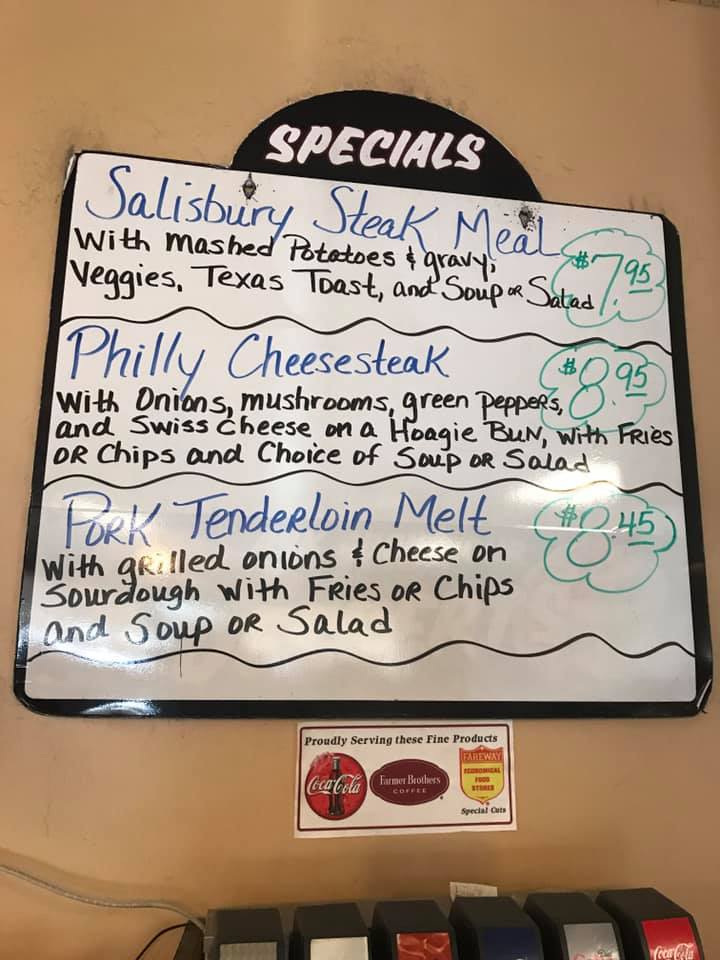 SPECIALS
Salisbury Steak Meal
With Mashed Potatoes & gravy,
Veggies, Texas Toast, and Soup or Salad
$7.95
Philly Cheesesteak
$8.95
With Onions, mushrooms, green peppers,
and Swiss cheese on a Hoagie Bun, with Fries
or Chips and Choice of Soup or Salad
Pork Tenderloin Melt
$8.45
With grilled onions & Cheese on
Sourdough with Fries or Chips
and Soup or Salad
Proudly Serving these Fine Products
Coca-Cola
Farmer Brothers
COFFEE
FAREWAY
ECONOMICAL
FOOD
STORES
Special Cuts
Coca-Cola